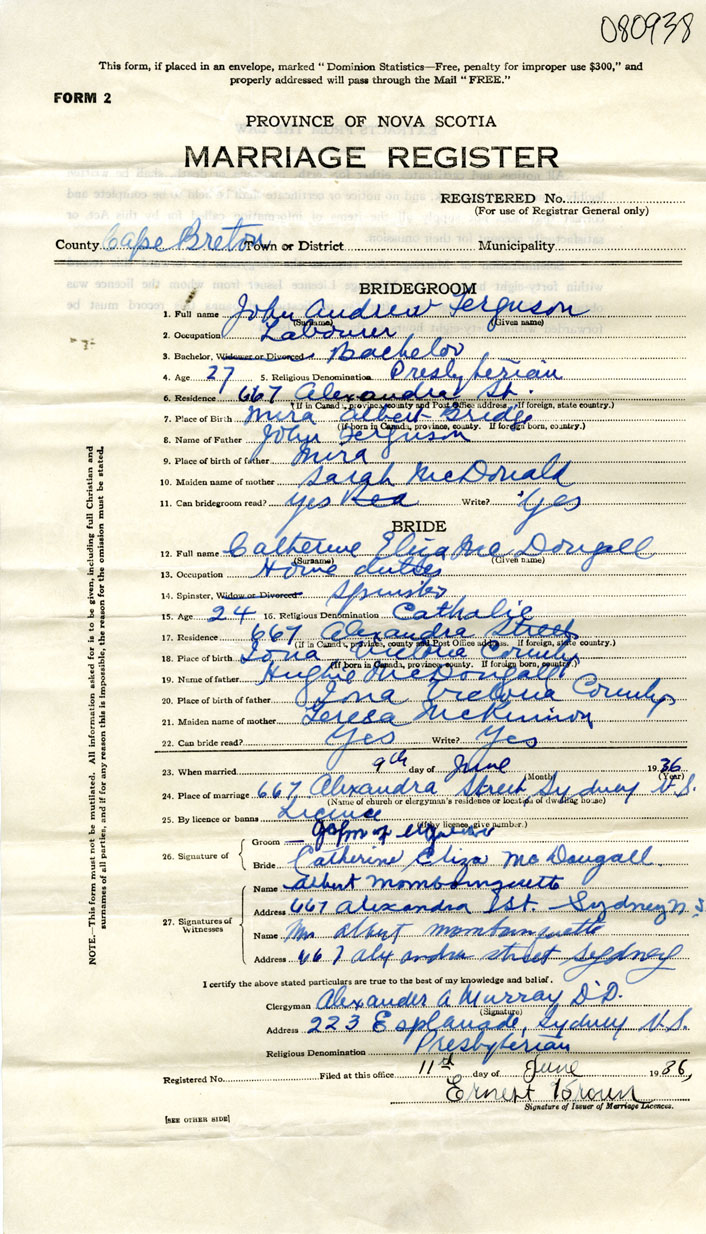 080938
This form, if placed in an envelope, marked "Dominion Statistics—Free, penalty for improper use $300," and
properly addressed will pass through the Mail "FREE."
FORM 2
PROVINCE OF NOVA SCOTIA
MARRIAGE REGISTER
REGISTERED No.
(For use of Registrar General only)
County Cape Breton Town or District Municipality
BRIDEGROOM
1. Full name John Andrew Ferguson
(Surname) (Given name)
2. Occupation Labourer
3. Bachelor, Widower or Divorced Bachelor
4. Age 27 5. Religious Denomination Presbyterian
6. Residence 667 Alexandra St.
(If in Canada, province, county and Post Office address. If foreign, state country.)
7. Place of Birth Mira Albert Bridge
(If born in Canada, province, county. If foreign born, country.)
8. Name of Father John Ferguson
9. Place of birth of father Mira
10. Maiden name of mother Sarah McDonald
11. Can bridegroom read? yes Write? Yes
BRIDE
12. Full name Catherine Eliza Mc Dougall
(Surname) (Given name)
13. Occupation Home duties
14. Spinster, Widow or Divorced Spinster
15. Age 24 16. Religious Denomination Catholic
17. Residence 667 Alexandra Street
(If in Canada, province, county and Post Office address. If foreign, state country.)
18. Place of birth Iona Victoria County
(If born in Canada, province, county. If foreign born, country.)
19. Name of father Hughie McDougall
20. Place of birth of father Iona Victoria County
21. Maiden name of mother Teresa McKinnon
22. Can bride read? Yes Write? Yes
23. When married 9th day of June 1936
(Month) (Year)
24. Place of marriage 667 Alexandra Street Sydney N.S.
(Name of church or clergyman's residence or location of dwelling house)
25. By licence or banns Licence
(If by licence, give number.)
26. Signature of
Groom
Bride Catherine Eliza McDougall
27. Signatures of Witnesses
Name Albert Mombourquette
Address 667 Alexandra St. Sydney N.S.
Name Mrs Albert Mombourquette
Address 667 Alexandra street Sydney
I certify the above stated particulars are true to the best of my knowledge and belief.
Clergyman Alexander A Murray D.D.
(Signature)
Address 223 Esplanade, Sydney N.S.
Religious Denomination Presbyterian
Registered No. Filed at this office 11th day of June 1936,
Ernest Brown
Signature of Issuer of Marriage Licences.
[SEE OTHER SIDE]
NOTE.—This form must not be mutilated. All information asked for is to be given, including full Christian and
surnames of all parties, and if for any reason this is impossible, the reason for the omission must be stated.